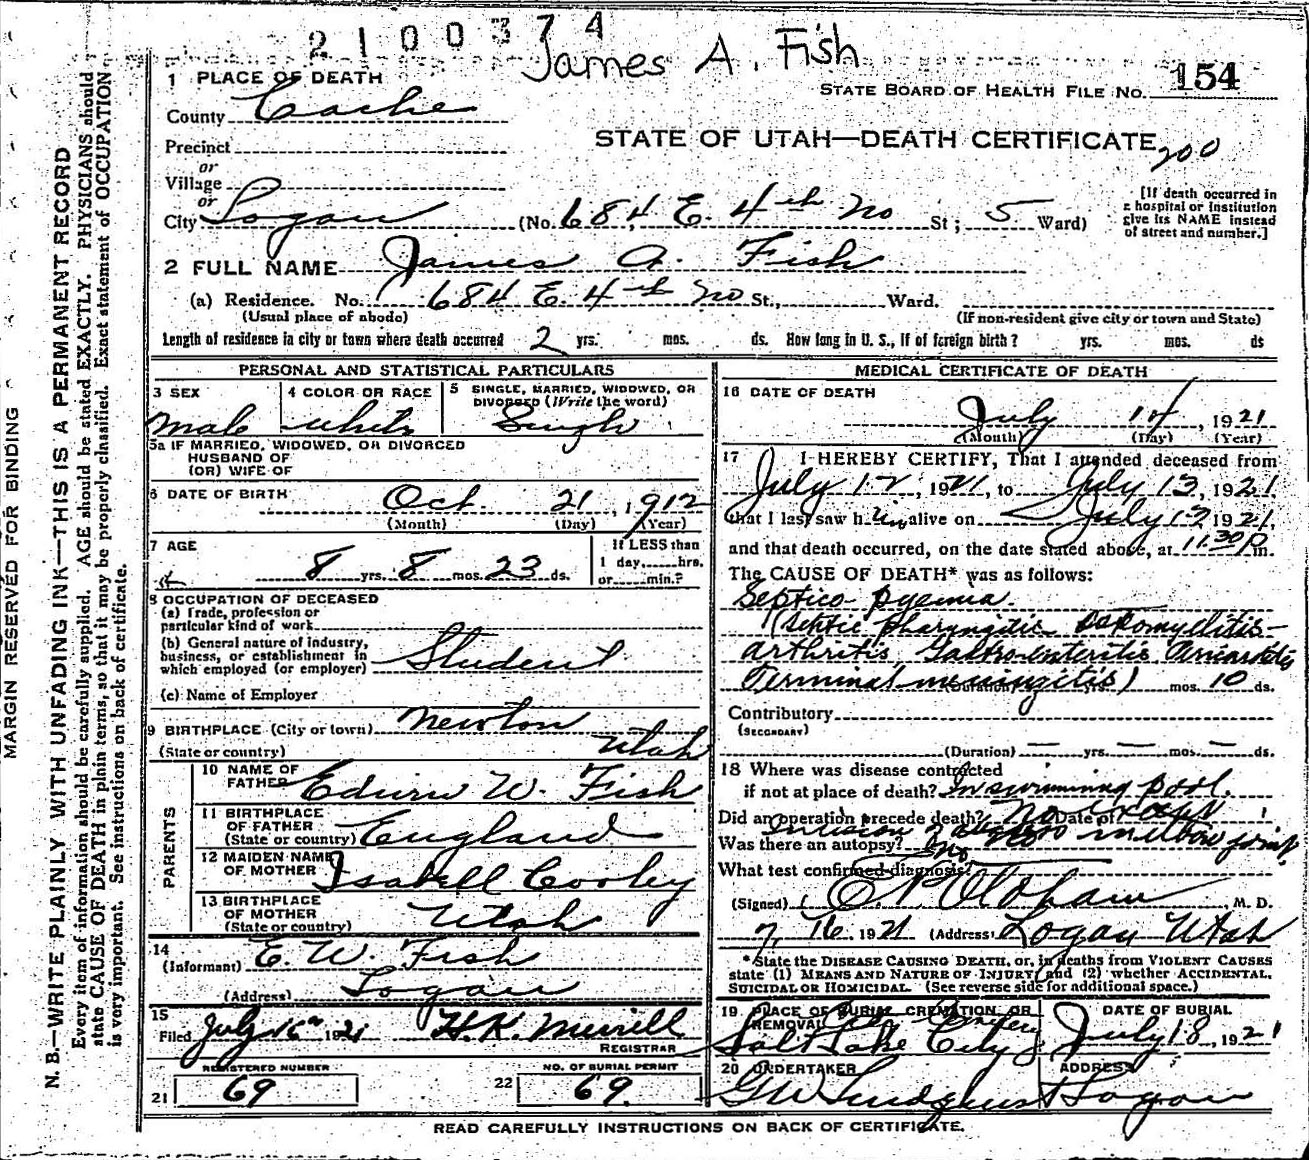 2100374
James A. Fish
1 PLACE OF DEATH
STATE BOARD OF HEALTH FILE NO. 154
County Cache
STATE OF UTAH—DEATH CERTIFICATE
200
Precinct
or
Village
or
City Logan (No. 684 E. 4th No St; 5 Ward)
[If death occurred in
a hospital or institution
give its NAME instead
of street and number.]
2 FULL NAME James A. Fish
(a) Residence. No. 684 E. 4th No St., Ward.
(Usual place of abode) (If non-resident give city or town and State)
Length of residence in city or town where death occurred 2 yrs. mos. ds. How long in U. S., if of foreign birth? yrs. mos. ds
PERSONAL AND STATISTICAL PARTICULARS
3 SEX
male
4 COLOR OR RACE
white
5 SINGLE, MARRIED, WIDOWED, OR
DIVORCED (Write the word)
Single
5a IF MARRIED, WIDOWED, OR DIVORCED
HUSBAND OF
(OR) WIFE OF
6 DATE OF BIRTH Oct. 21, 1912
(Month) (Day) (Year)
7 AGE
8 yrs. 8 mos. 23 ds.
If LESS than
1 day, hrs.
or min.?
8 OCCUPATION OF DECEASED
(a) Trade, profession or
particular kind of work
(b) General nature of industry,
business, or establishment in
which employed (or employer) Student
(c) Name of Employer
9 BIRTHPLACE (City or town) Newton
(State or country) Utah
PARENTS
10 NAME OF
FATHER Edwin W. Fish
11 BIRTHPLACE
OF FATHER
(State or country) England
12 MAIDEN NAME
OF MOTHER Isabell Cooley
13 BIRTHPLACE
OF MOTHER
(State or country) Utah
14
(Informant) E. W. Fish
(Address) Logan
15
Filed July 16th 1921 H. K. Merrill
REGISTRAR
REGISTERED NUMBER
21 69
NO. OF BURIAL PERMIT
22 69.
MEDICAL CERTIFICATE OF DEATH
16 DATE OF DEATH
July 14, 1921
(Month) (Day) (Year)
17 I HEREBY CERTIFY, That I attended deceased from
July 12, 1921, to July 13, 1921
that I last saw him alive on July 13 1921,
and that death occurred, on the date stated above, at 11:30 P m.
The CAUSE OF DEATH* was as follows:
Septico pyemia.
(Septic pharyngitis Osteomyelitis—
arthritis Gastro-enteritis
Terminal meningitis)
(Duration) yrs. mos. 10 ds.
Contributory
(SECONDARY)
(Duration) — yrs. — mos. — ds.
18 Where was disease contracted
if not at place of death? In swimming pool.
Did an operation precede death? No Date of
Incision of abscess in elbow joint
Was there an autopsy? No
What test confirmed diagnosis? No
(Signed) C. P. Oldham, M. D.
7, 16, 1921 (Address) Logan Utah
*State the DISEASE CAUSING DEATH, or, in deaths from VIOLENT CAUSES
state (1) MEANS AND NATURE OF INJURY, and (2) whether ACCIDENTAL,
SUICIDAL OR HOMICIDAL. (See reverse side for additional space.)
19 PLACE OF BURIAL CREMATION, OR
REMOVAL City Cemetery
Salt Lake City
DATE OF BURIAL
July 18, 1921
20 UNDERTAKER
G W Lindquist
ADDRESS
Logan
READ CAREFULLY INSTRUCTIONS ON BACK OF CERTIFICATE.
MARGIN RESERVED FOR BINDING
N. B.—WRITE PLAINLY WITH UNFADING INK—THIS IS A PERMANENT RECORD
Every item of information should be carefully supplied. AGE should be stated EXACTLY. PHYSICIANS should
state CAUSE OF DEATH in plain terms, so that it may be properly classified. Exact statement of OCCUPATION
is very important. See instructions on back of certificate.